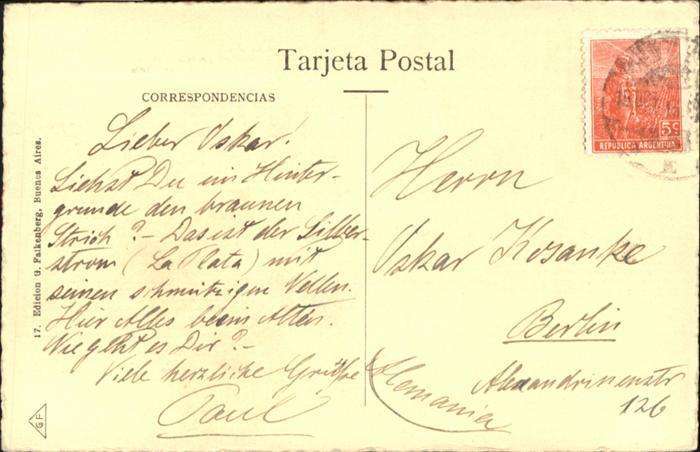 Tarjeta Postal
CORRESPONDENCIAS
Lieber Oskar!
Siehst Du im Hinter-
grunde den braunen
Strich? - Das ist der Silber-
strom (La Plata) mit
seinen schmutzigen Wellen.
Hier Alles beim Alten.
Wie geht es Dir? -
Viele herzliche Grüße
Paul
17. Edicion G. Falkenberg, Buenos Aires.
GF
5c
REPUBLICA ARGENTINA
Herrn
Oskar Kosanke
Berlin
Alexandrinenstr
126
Alemania